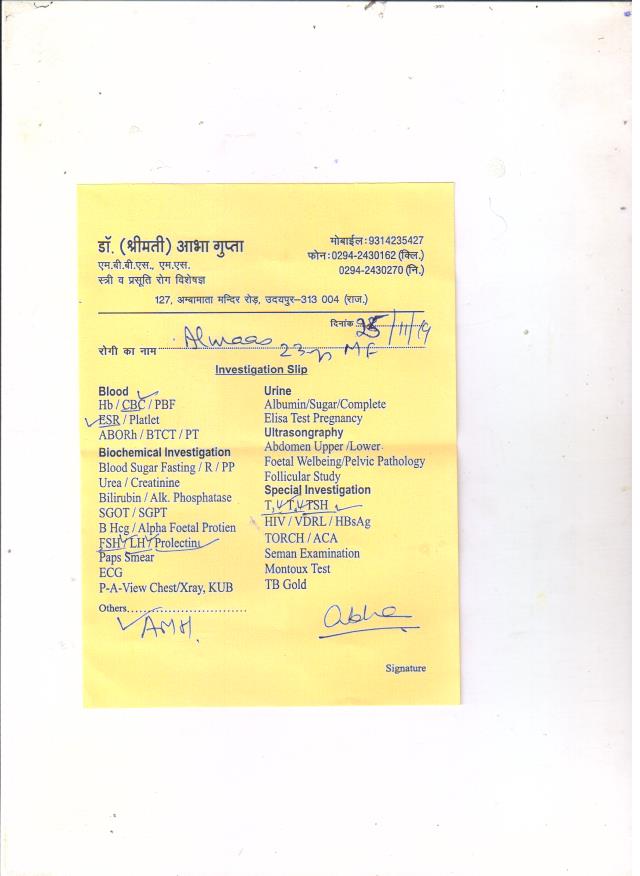 डॉ. (श्रीमती) आभा गुप्ता
एम.बी.बी.एस., एम.एस.
स्त्री व प्रसूति रोग विशेषज्ञ
मोबाईल:9314235427
फोन:0294-2430162 (क्लि.)
0294-2430270 (नि.)
127, अम्बामाता मन्दिर रोड़, उदयपुर–313 004 (राज.)
दिनांक 25/11/19
रोगी का नाम Almaas 23 MF
Investigation Slip
Blood
Hb / CBC / PBF
ESR / Platlet
ABORh / BTCT / PT
Biochemical Investigation
Blood Sugar Fasting / R / PP
Urea / Creatinine
Bilirubin / Alk. Phosphatase
SGOT / SGPT
B Hcg / Alpha Foetal Protien
FSH / LH / Prolectin
Paps Smear
ECG
P-A-View Chest/Xray, KUB
Others...........................
AMH.
Urine
Albumin/Sugar/Complete
Elisa Test Pregnancy
Ultrasongraphy
Abdomen Upper /Lower
Foetal Welbeing/Pelvic Pathology
Follicular Study
Special Investigation
T3 T4 TSH
HIV / VDRL / HBsAg
TORCH / ACA
Seman Examination
Montoux Test
TB Gold
Abha
Signature